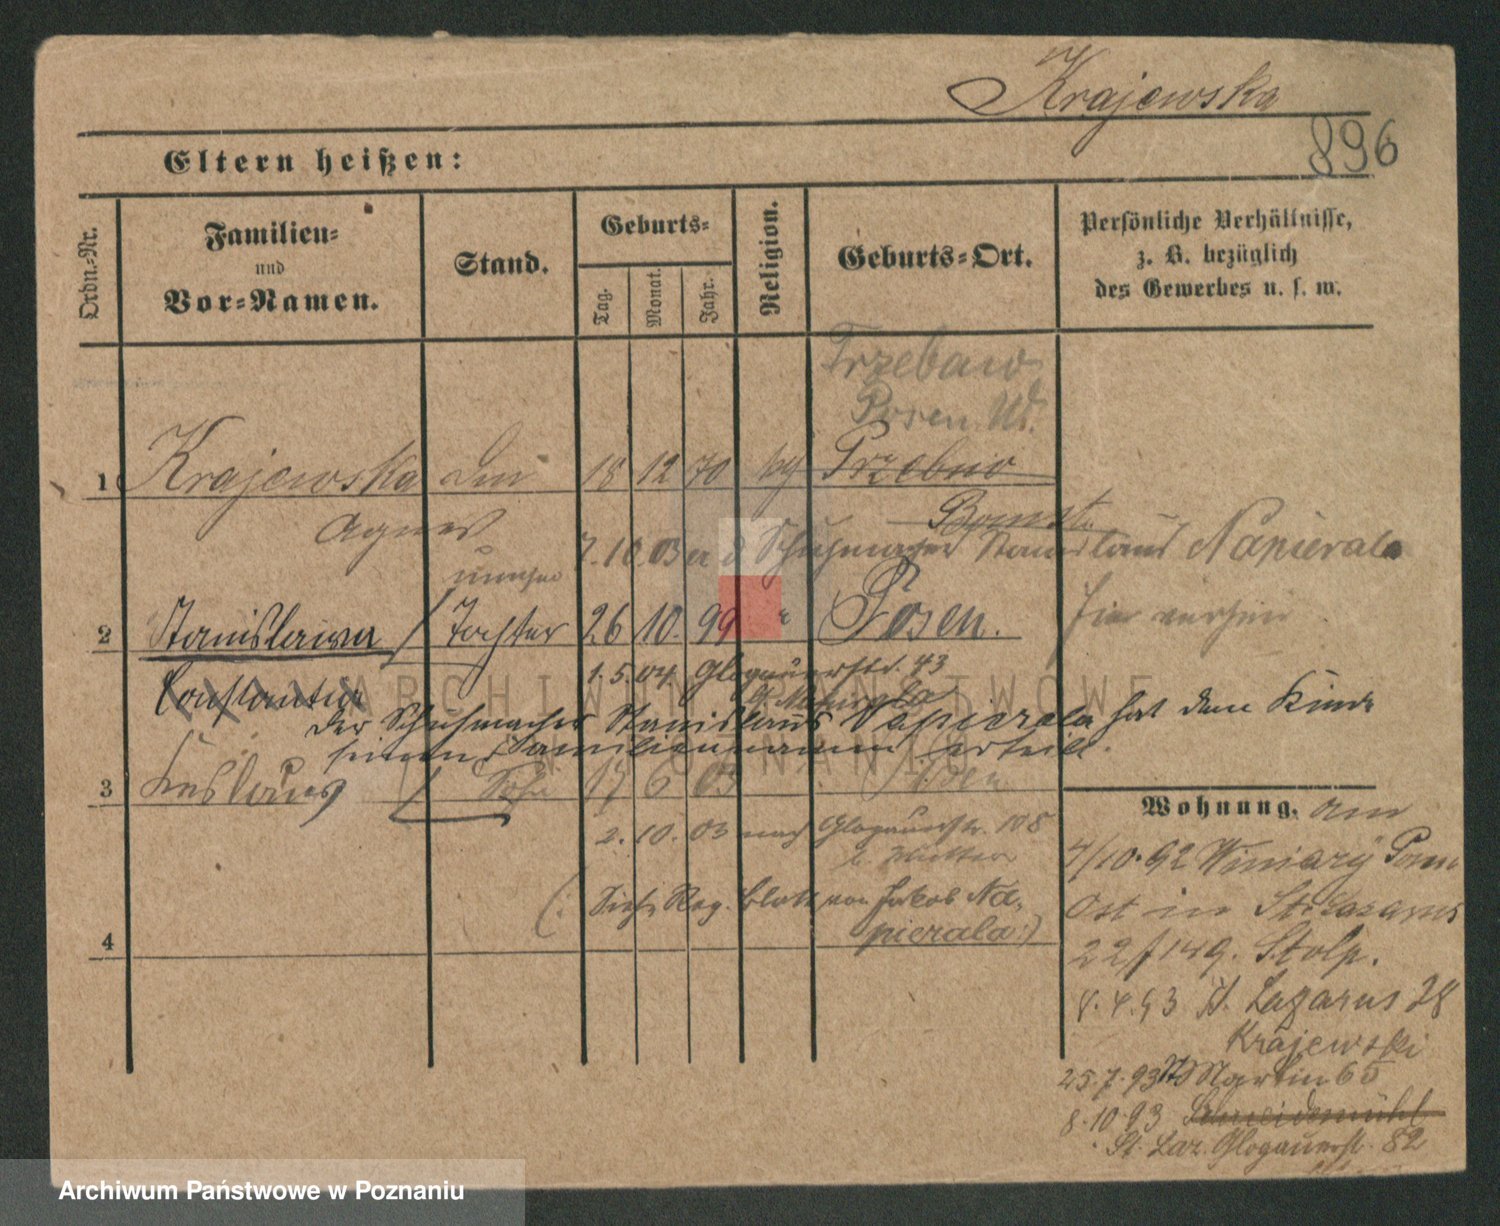 Krajewska
896
Eltern heißen:
Ordn.-Nr.
Familien-
und
Vor-Namen.
Stand.
Geburts-
Tag.
Monat.
Jahr.
Religion.
Geburts-Ort.
Persönliche Verhältnisse,
z. B. bezüglich
des Gewerbes u. s. w.
Trzebaw
Posen W.
1 Krajewska 18 12 70 Trzebaw
Agnes
Bomst
7.10.03 Schuhmacher Stanislaus Napierala
2 Stanislawa Tochter 26 10. 99 " Posen.
Constantia
1.5.04 Glogauerstr. 43
Der Schuhmacher Stanislaus Napierala hat dem Kinde
seinen Familiennamen erteilt.
3 Sohn 17 6 03 Posen
2. 10. 03 nach Glogauerstr. 108
(: Siehe Reg. Blatt von Jakob Na-
pierala :)
4
Wohnung.
4/10.92 Winiary Posen
Ost in St. Lazarus
Stolp.
8.4.93 St. Lazarus 28
Krajewski
25.7.93 St Martin 65
8.10.93 Schneidemühl
St. Laz. Glogauerstr. 82
ARCHIWUM PAŃSTWOWE
W POZNANIU
Archiwum Państwowe w Poznaniu